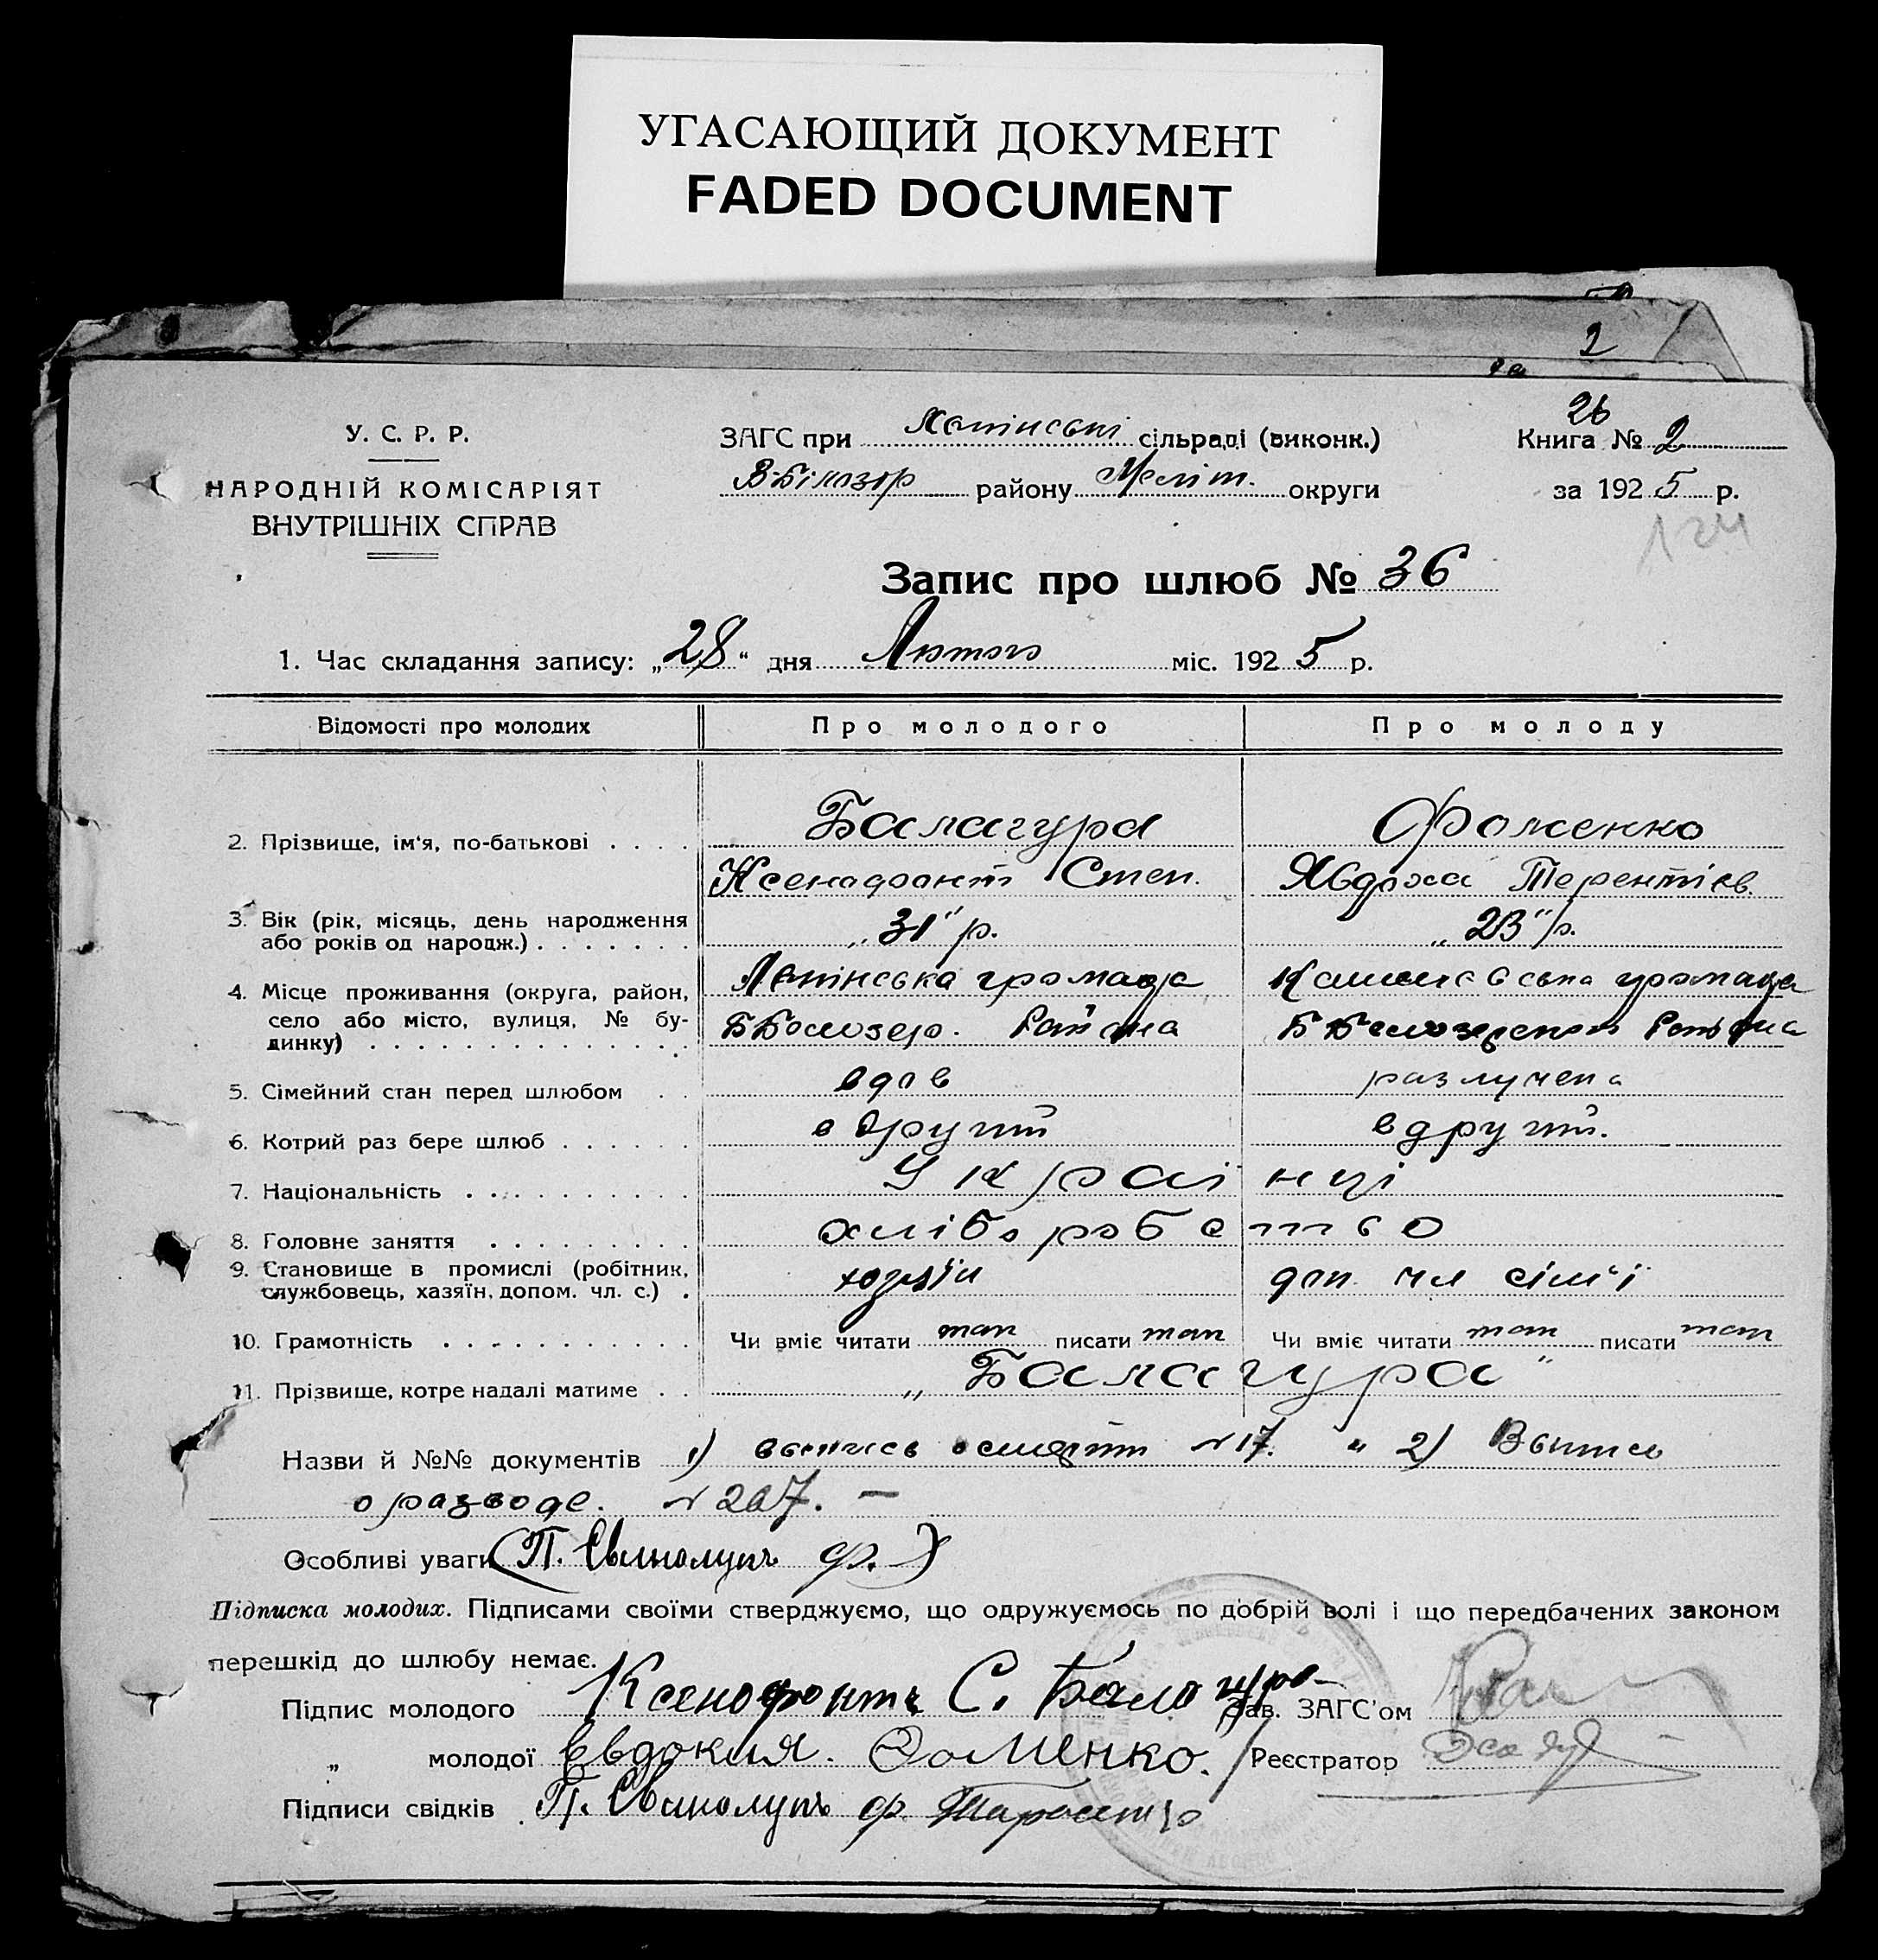 УГАСАЮЩИЙ ДОКУМЕНТ
FADED DOCUMENT
2
У. С. Р. Р.
НАРОДНІЙ КОМІСАРІЯТ
ВНУТРІШНІХ СПРАВ
ЗАГС при сільраді (виконк.)
В-Білозір району Меліт. округи
26
Книга № 2
за 1925 р.
124
Запис про шлюб № 36
1. Час складання запису: „28“ дня Лютого міс. 1925 р.
Відомості про молодих Про молодого Про молоду
2. Прізвище, ім‘я, по-батькові . . . . Балагура Фоменко
Ксенофонт Степ. Явдоха Терентієв.
3. Вік (рік, місяць, день народження
або років од народж.) . . . . . . . „31“ р. „23“ р.
4. Місце проживання (округа, район, громада громада
село або місто, вулиця, № бу-
динку) . . . . . . . . . . . . . . . ББолозер. Района Б Белозерского Района
5. Сімейний стан перед шлюбом . . вдов разлучена
6. Котрий раз бере шлюб . . . . . . в другий в другий.
7. Національність . . . . . . . . . . Українці
8. Головне заняття . . . . . . . . . хліборобство
9. Становище в промислі (робітник,
службовець, хазяїн, допом. чл. с.) . хозяїн доп. чл сім‘ї
10. Грамотність . . . . . . . . . . . Чи вміє читати так писати так Чи вміє читати так писати так
11. Прізвище, котре надалі матиме . . „Балагура“
Назви й №№ документів 1) выпись о смерти №17. " 2) Выпись
о разводе. № 267. —
Особливі уваги (П. ф.)
Підписка молодих. Підписами своїми стверджуємо, що одружуємось по добрій волі і що передбачених законом
перешкід до шлюбу немає.
Підпис молодого Ксенофонтъ С. Балагура Зав. ЗАГС’ом
„ молодої Евдокия. Фоменко. Реєстратор
Підписи свідків П. ф